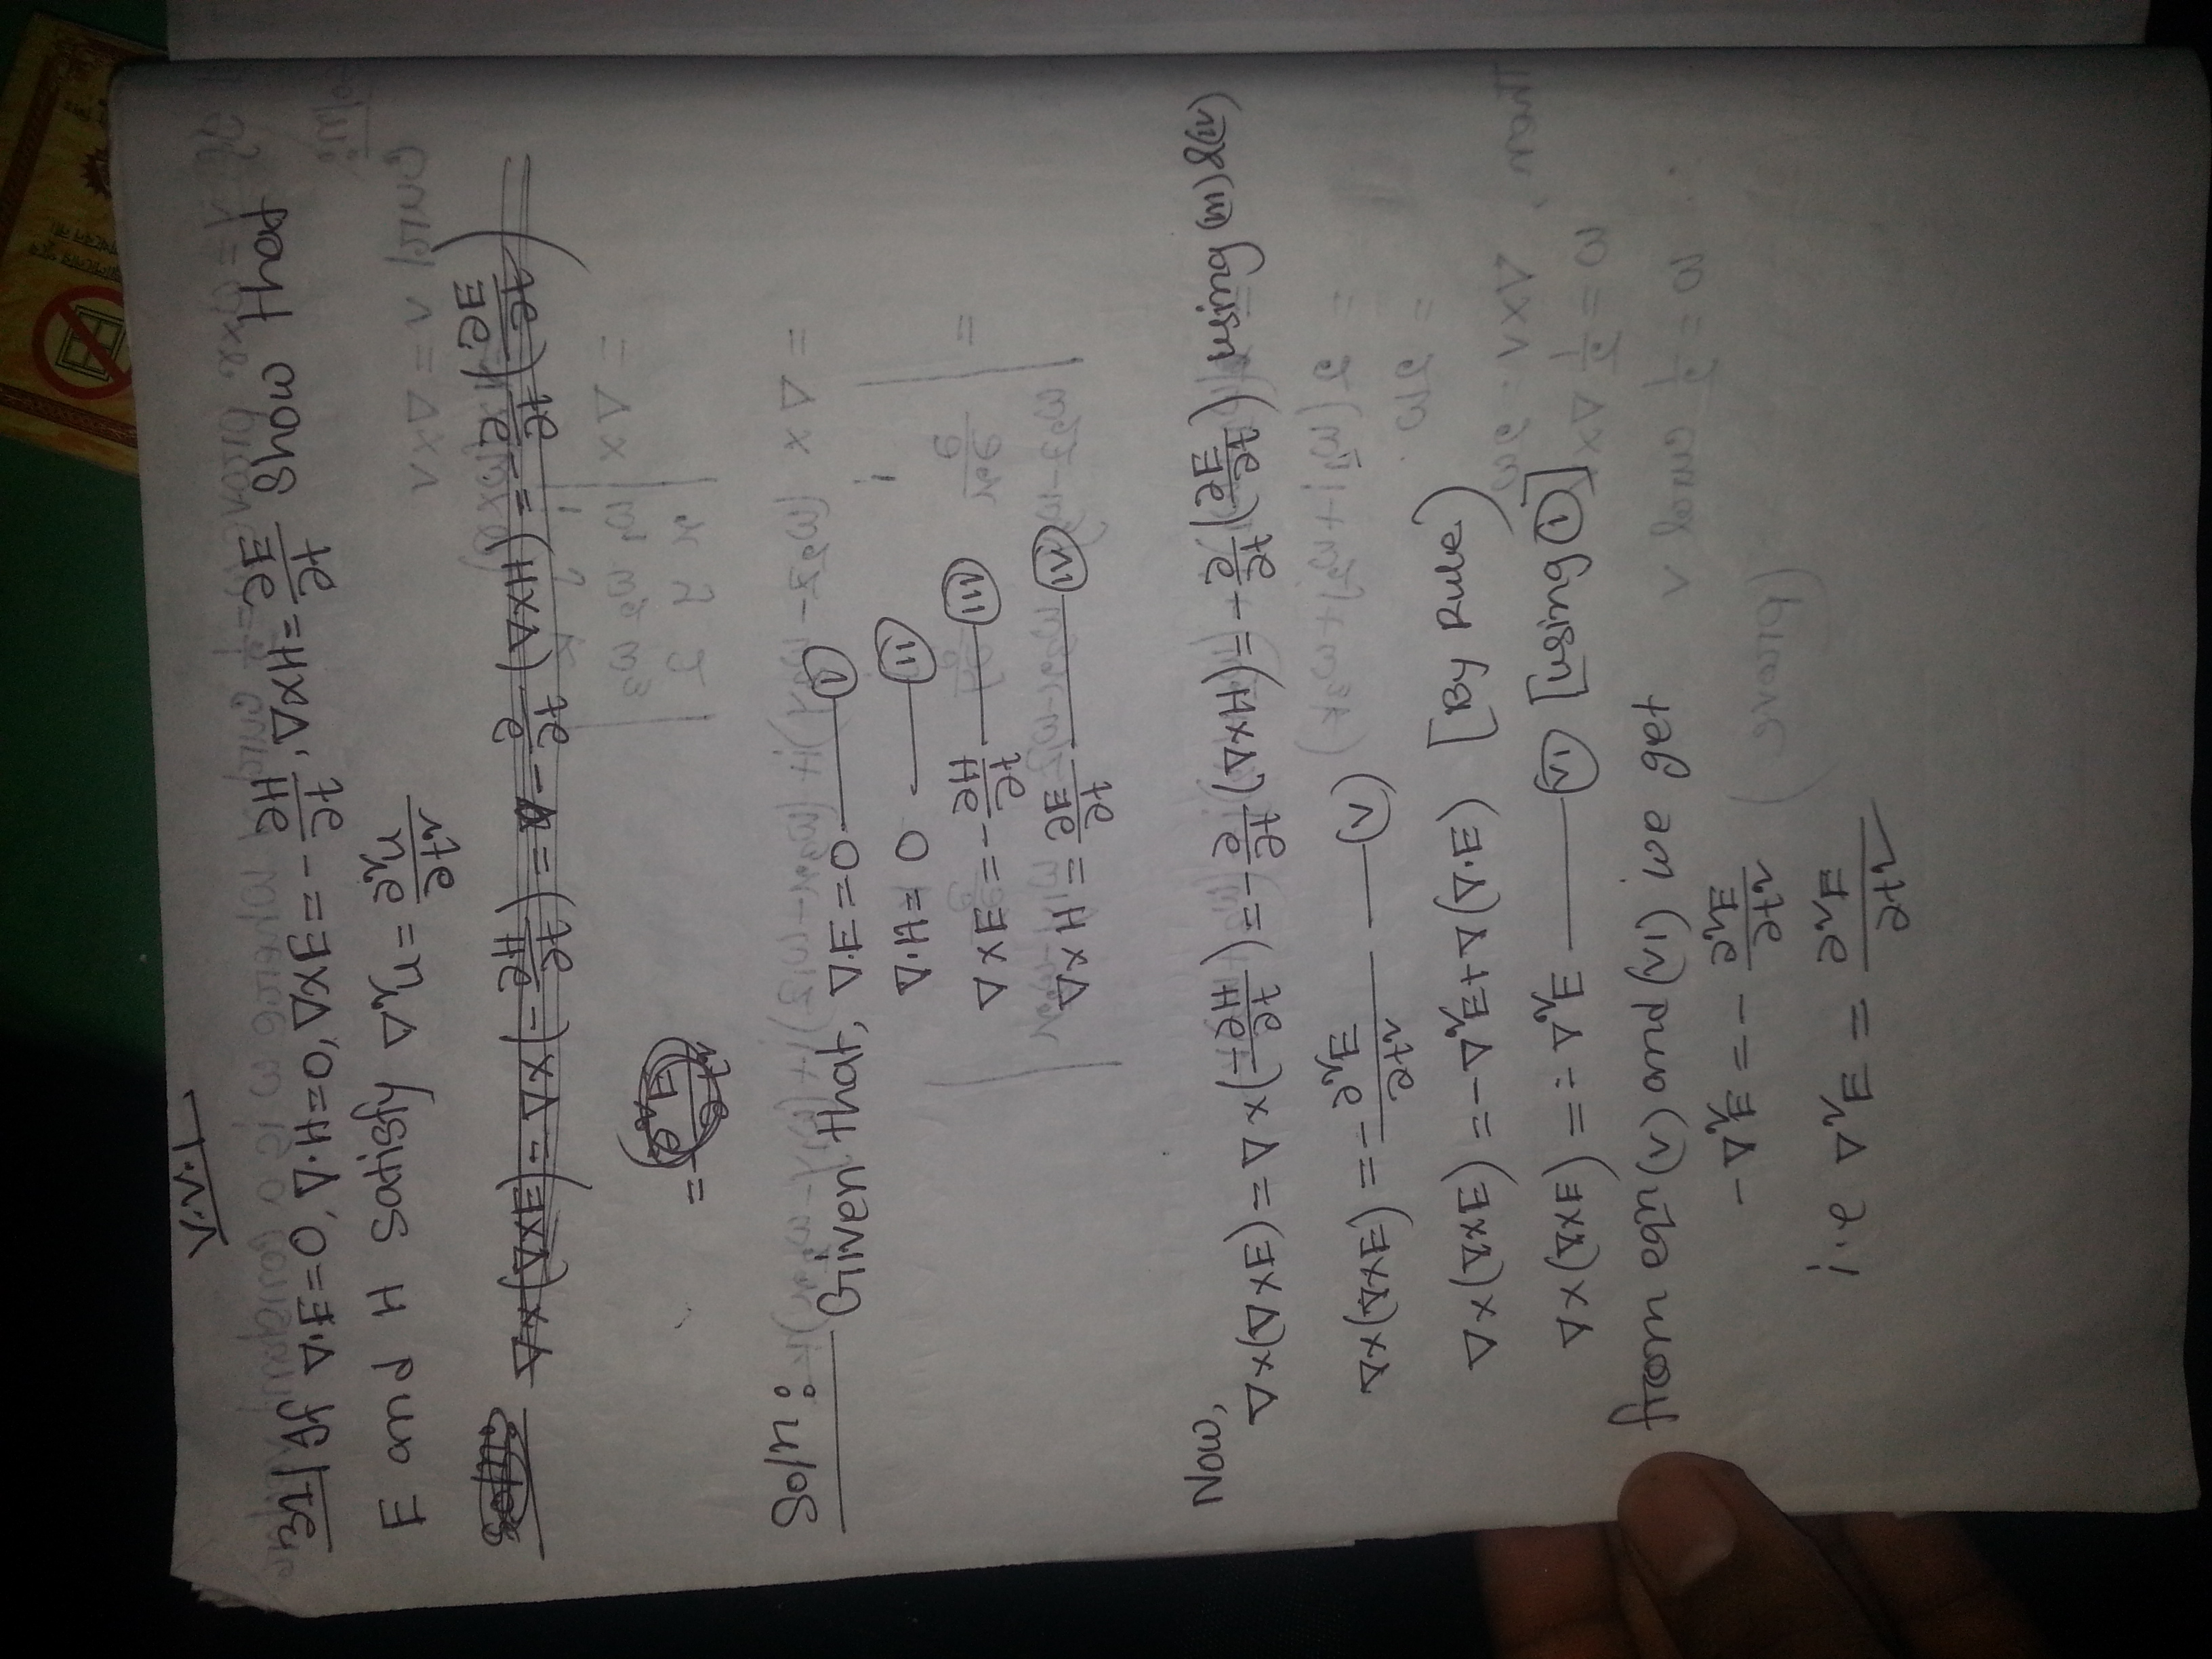 V.V.I
31| If ∇·E=0, ∇·H=0, ∇×E=-∂H/∂t, ∇×H=∂E/∂t Show that
E and H satisfy ∇²u=∂²u/∂t²
Soln: ∇×(∇×E)=∇×(-∂H/∂t)=-∂/∂t(∇×H)=-∂/∂t(∂E/∂t)
=∂²E/∂t²
Soln:
Given that, ∇.E=0 — (i)
∇·H=0 — (ii)
∇×E=-∂H/∂t — (iii)
∇×H=∂E/∂t — (iv)
Now,
∇×(∇×E)=∇×(-∂H/∂t)=-∂/∂t(∇×H)=-∂/∂t(∂E/∂t) using (iii)&(iv)
∇×(∇×E)=-∂²E/∂t² — (v)
∇×(∇×E)=-∇²E+∇(∇·E) [By Rule)
∇×(∇×E)=-∇²E — (vi) [using (i)]
from eqn (v) and (vi) we get
-∇²E=-∂²E/∂t²
i.e ∇²E=∂²E/∂t²